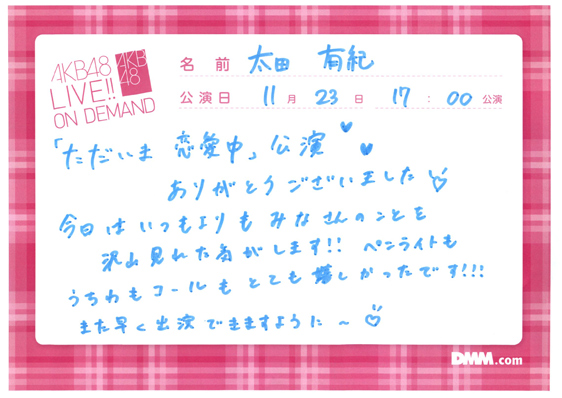 AKB48
LIVE!!
ON DEMAND
AKB
48
名 前 太田 有紀
公演日 11月 23日 17:00公演
「ただいま 恋愛中」公演
ありがとうございました
今日はいつもよりもみなさんのことを
沢山見れた気がします!! ペンライトも
うちわもコールもとても嬉しかったです!!!
また早く出演できますように〜
DMM.com